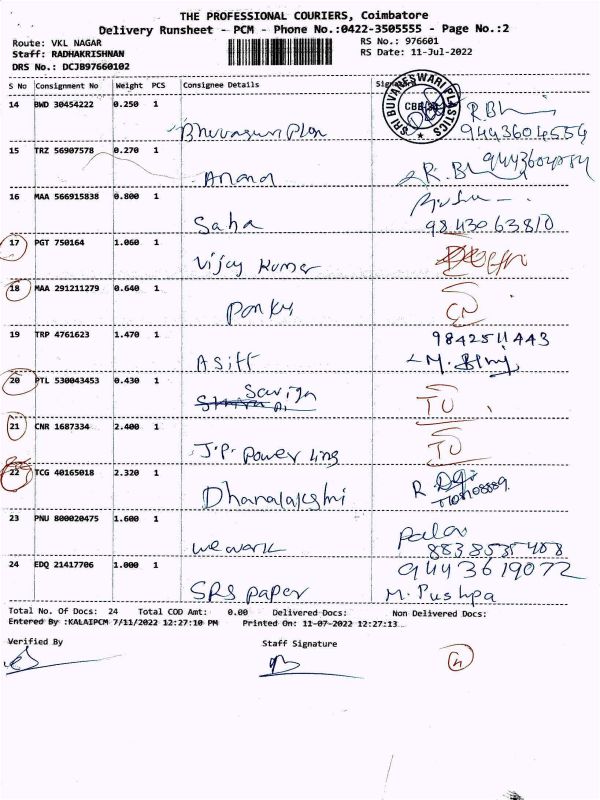 THE PROFESSIONAL COURIERS, Coimbatore
Delivery Runsheet - PCM - Phone No.:0422-3505555 - Page No.:2
Route: VKL NAGAR
RS No.: 976601
Staff: RADHAKRISHNAN
RS Date: 11-Jul-2022
DRS No.: DCJB97660102
S No Consignment No Weight PCS Consignee Details
14 BWD 30454222 0.250 1
SRI BUVANESWARI PLASTICS
CBE
9443604554
15 TRZ 56907578 0.270 1
Anand
16 MAA 566915838 0.800 1
Saha 9843063810
17 PGT 750164 1.060 1
Vijay Kumar
18 MAA 291211279 0.640 1
19 TRP 4761623 1.470 1
Asiff 9842511443
20 PTL 530043453 0.430 1
TO
21 CNR 1687334 2.400 1
J.P. Power Ling TO
22 TCG 40165018 2.320 1
Dhanalakshmi
23 PNU 800020475 1.600 1
wework
24 EDQ 21417706 1.000 1
9443619072
SRS paper M. Pushpa
Total No. Of Docs: 24 Total COD Amt: 0.00 Delivered Docs: Non Delivered Docs:
Entered By :KALAIPCM 7/11/2022 12:27:10 PM Printed On: 11-07-2022 12:27:13
Verified By Staff Signature